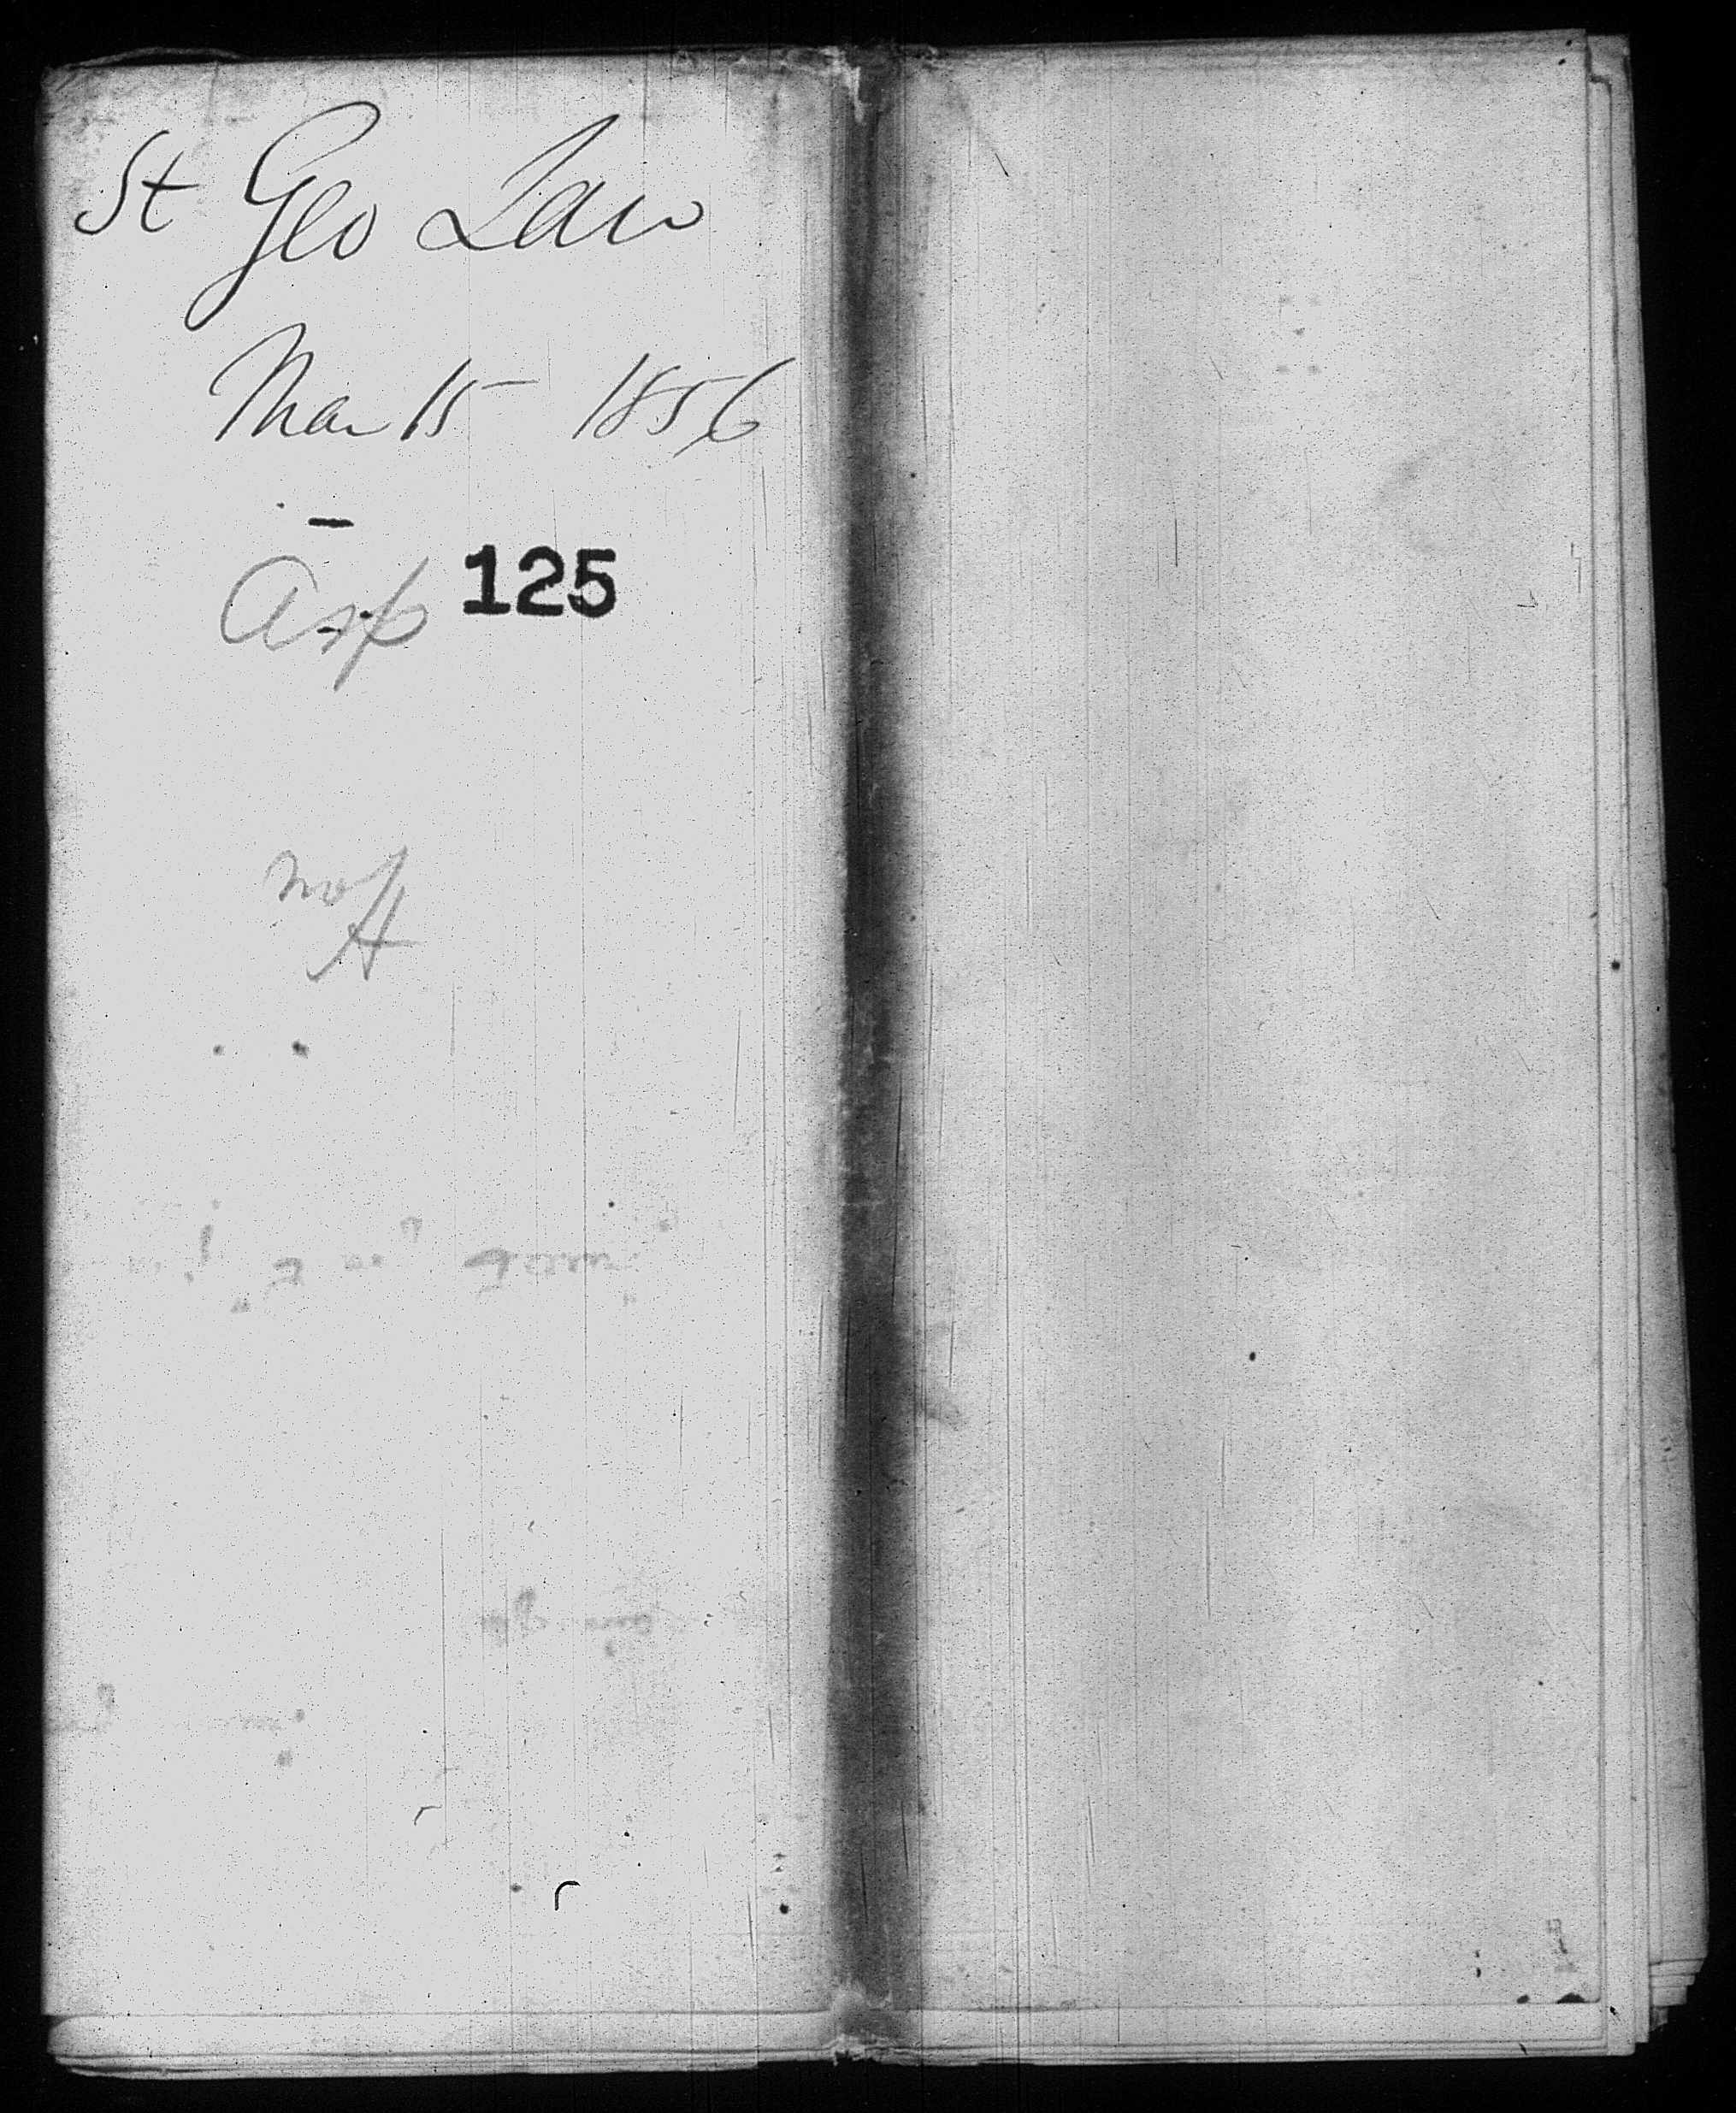 St Geo Law
Mar 15 1856
Asp 125
no
H